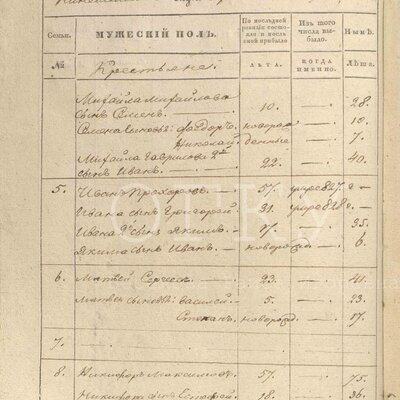 Семьи.
МУЖЕСКІЙ ПОЛЪ.
По послѣдней ревизіи состояло и послѣ оной прибыло
Изъ того числа выбыло.
Нынѣ.
№
Крестьяне:
ЛѢТА.
КОГДА ИМЕННО.
Лѣта.
Михайла Михайлова
сынъ Семенъ 10. 28.
Семена сыновья: Фёдоръ новорож 10.
Николай денные 7.
Михайла Гаврилова 2й
сынъ Иванъ. 22. 40.
5. Иванъ Прохоровъ 57. умре 827. г. —
Ивана сынъ Григорей 31. умре 828 г. —
Ивана 2й сынъ Якимъ 17. — 35.
Якима сынъ Иванъ новорожд. — 6.
6. Матвей Сергеевъ 23. 41.
Матвея сыновья: Василей 5. 23.
Степанъ новорожд. 17.
7. — — —
8. Никифоръ Максимовъ 57. 75.
Никифора сынъ Естафей 18. — 36.